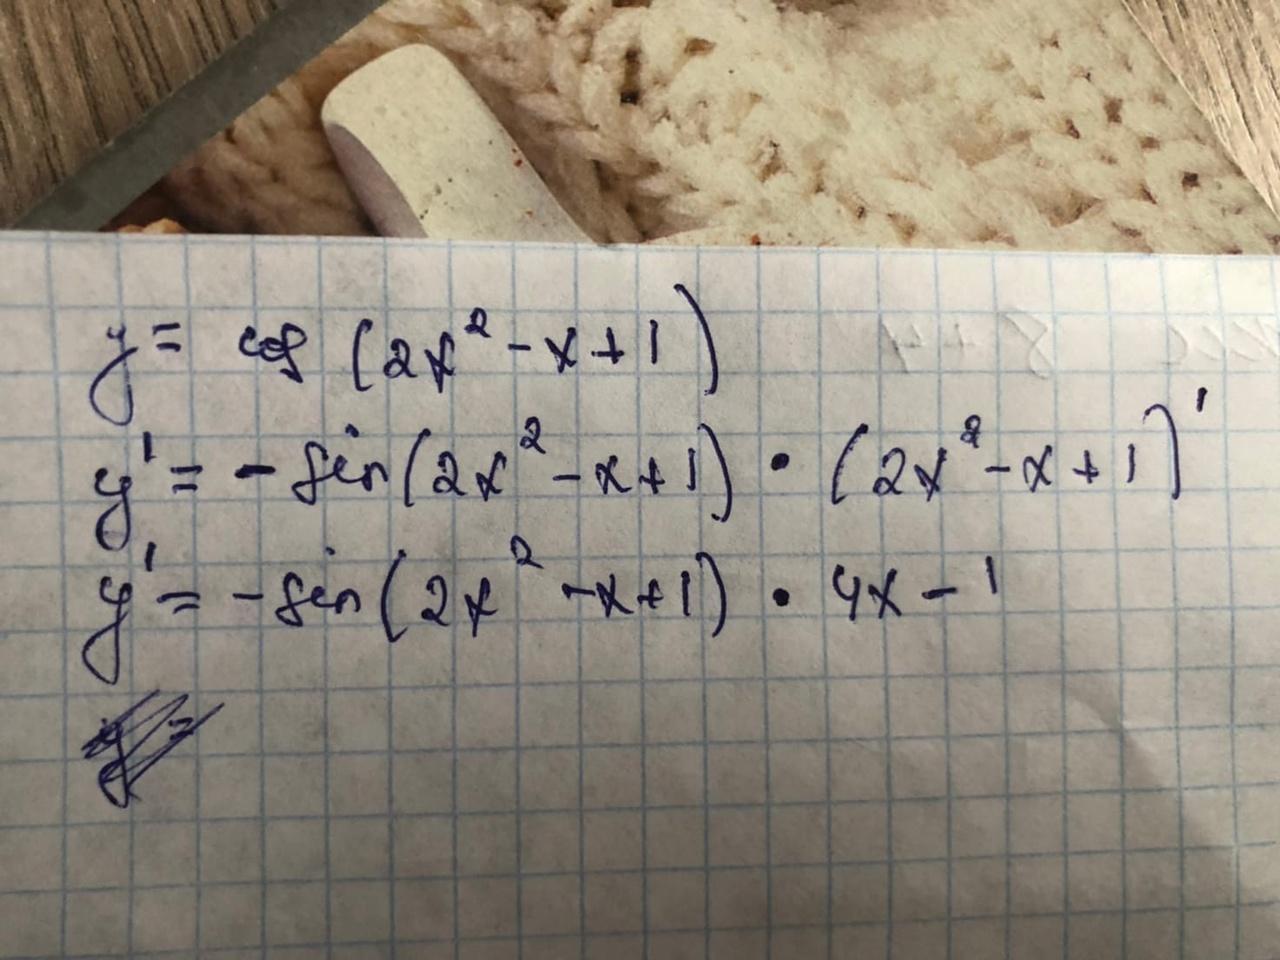 y = cos (2x² - x + 1)
y' = - sin (2x² - x + 1) · (2x² - x + 1)'
y' = - sin (2x² - x + 1) · 4x - 1